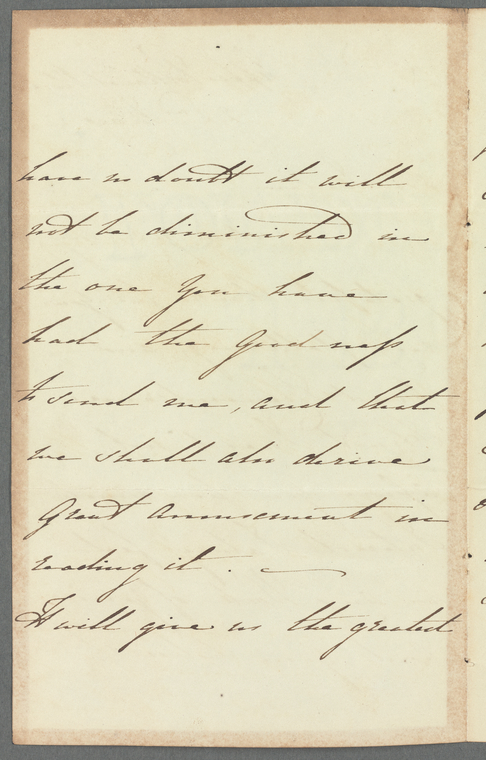 have no doubt it will
not be diminished in
the one you have
had the goodness
to send me, and that
we shall also derive
great amusement in
reading it. —
It will give us the greatest